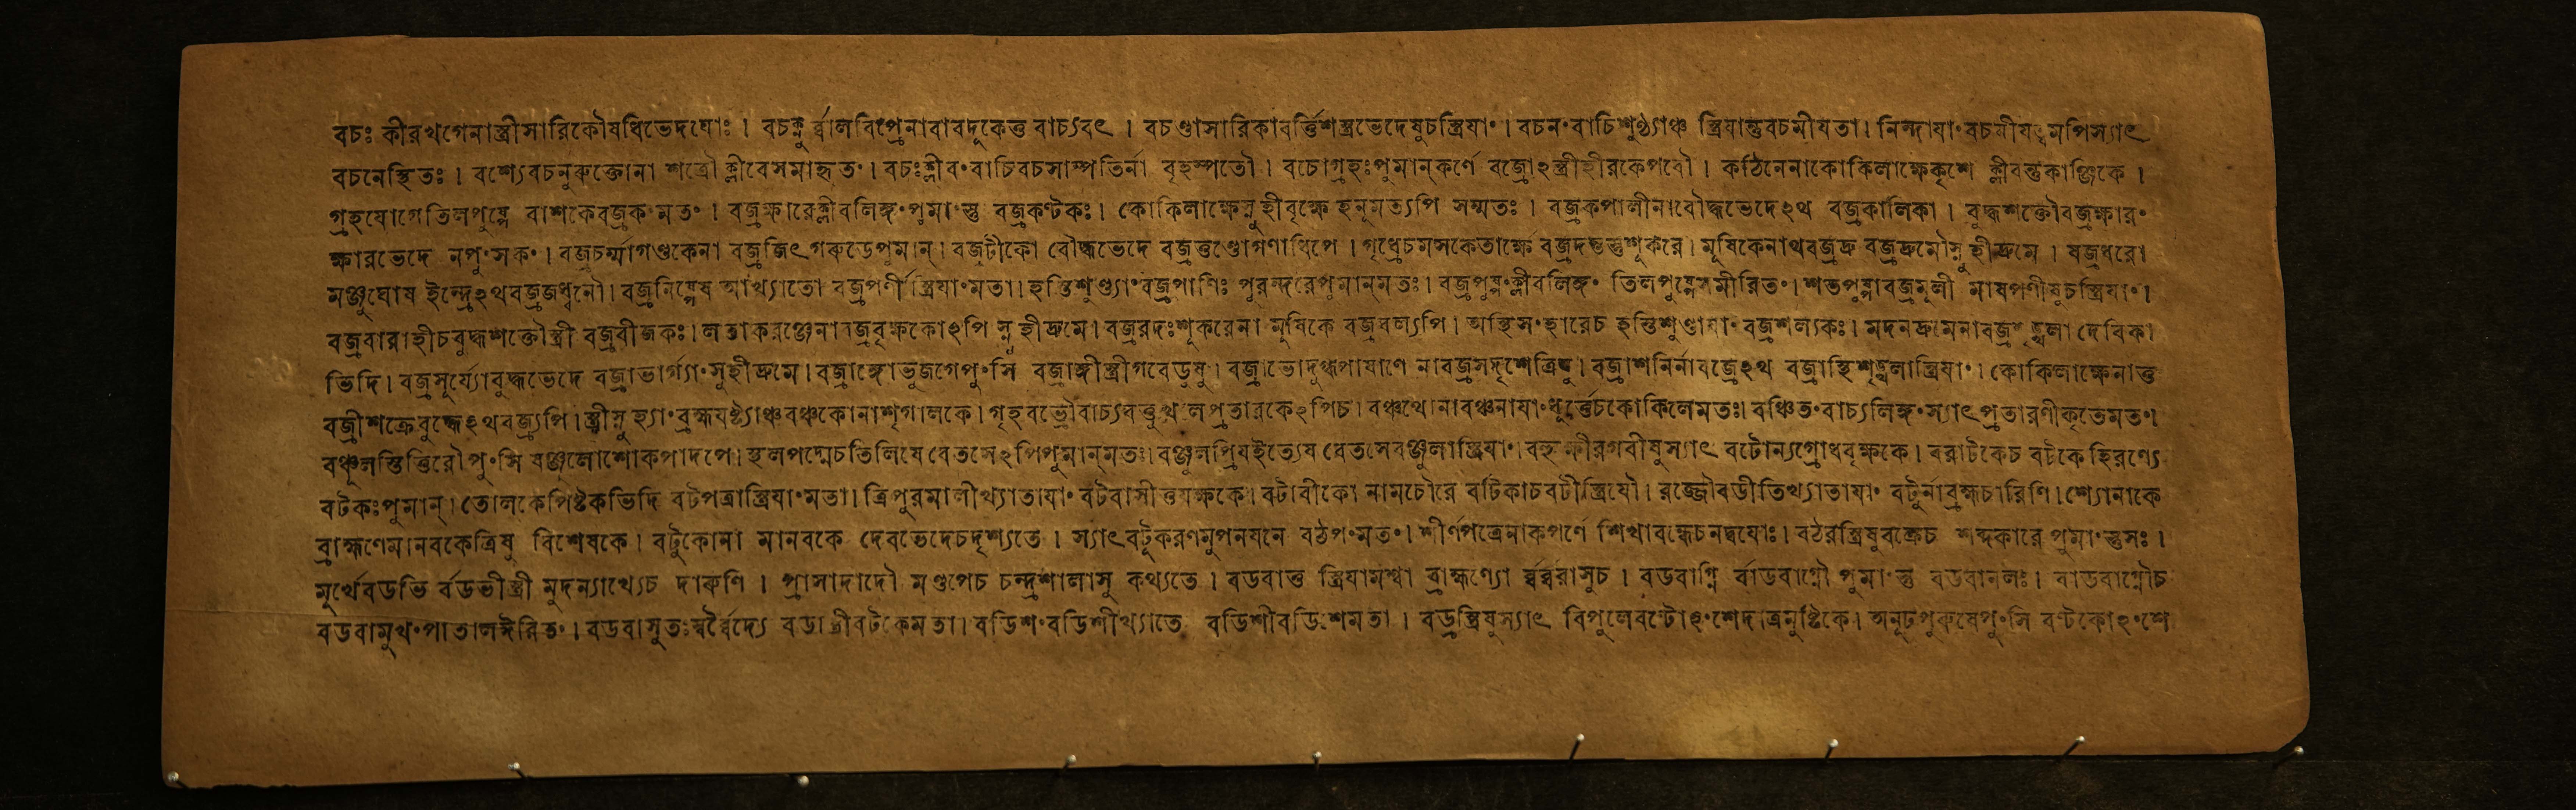 বচঃ কীরখগেনাস্ত্রীসারিকৌষধিভেদযোঃ । বচক্নু র্ব্বালবিপ্রেনাবাবদূকেত্ত বাচ্যবৎ । বচণ্ডাসারিকাবর্ত্তিশস্ত্রভেদেষুচস্ত্রিযাং । বচনংবাচিশুণ্ঠ্যাঞ্চ স্ত্রিযান্তুবচমীযতা । নিন্দাযাং বচযীয মপিস্যাৎ
বচনেস্থিতঃ । বশ্যেবচনুরুক্তোনা শত্রৌ ক্লীবেসমাহৃতং । বচঃক্লীবংবাচিবচসাম্পতির্না বৃহস্পতৌ । বচোগ্রহঃপুমান্কর্ণে বজ্রোঽস্ত্রীহীরকেপবৌ । কঠিনেনাকোকিলাক্ষেকৃশে ক্লীবন্তুকাঞ্জিকে ।
গ্রহযোগেতিলপুষ্পে বাশকেবজ্রকংমতং । বজ্রক্ষারেক্লীবলিঙ্গংপুমাংস্তু বজ্রকণ্টকঃ । কোকিলাক্ষেস্নুহীবৃক্ষে হনূমত্যপি সম্মতঃ । বজ্রকপালীনাবৌদ্ধভেদেঽথ বজ্রকালিকা । বুদ্ধশক্তৌবজ্রক্ষারং
ক্ষারভেদে নপুংসকং । বজ্রচর্ম্মাগণ্ডকেনা বজ্রজিৎ গরুডেপুমান্ । বজ্রটীকো বৌদ্ধভেদে বজ্রতুণ্ডোগণাধিপে । গৃধ্রেচমসকেতার্ক্ষে বজ্রদন্তস্তুশূকরে । মূষিকেনাথবজ্রদ্রু বজ্রদ্রুমৌস্নুহীদ্রুমে । বজ্রধরো
মঞ্জুঘোষ ইন্দ্রেঽথবজ্রজধ্বনৌ । বজ্রনিষ্পেষ আখ্যাতো বজ্রপর্ণীস্ত্রিযাংমতা । হস্তিশুণ্ড্যাংবজ্রপাণিঃ পুরন্দরেপুমান্মতঃ । বজ্রপুষ্পংক্লীবলিঙ্গং তিলপুষ্পেসমীরিতং । শতপুষ্পাবজ্রমূলী মাষপর্ণীষুচস্ত্রিযাং ।
বজ্রবারাহীচবুদ্ধশক্তৌস্ত্রী বজ্রবীজকঃ । লতাকরঞ্জেনাবজ্রবৃক্ষকোঽপি স্নুহীদ্রুমে । বজ্ররদঃশূকরেনা মূষিকে বজ্রবল্যপি । অস্থিসংহারেচ হস্তিশুণ্ডাযাং বজ্রশল্যকঃ । মদনদ্রুমেনাবজ্রশৃঙ্খলা দেবিকা
ভিদি । বজ্রসূর্য্যোবুদ্ধভেদে বজ্রাভার্গ্যাংস্নুহীদ্রুমে । বজ্রাঙ্গোভুজগেপুংসি বজ্রাঙ্গীস্ত্রীগবেডুষু । বজ্রাভোদুগ্ধপাষাণে নাবজ্রসদৃশেত্রিষু । বজ্রাশনির্নাবজ্রেঽথ বজ্রাস্থিশৃঙ্খলাস্ত্রিযাং । কোকিলাক্ষেনাত্ত
বজ্রীশক্রেবুদ্ধেঽথবজ্র্যপি । স্ত্রীস্নুহ্যাং ব্রহ্মযষ্ট্যাঞ্চবঞ্চকোনাশৃগালকে । গৃহবভ্রৌবাচ্যবত্তু খলপ্রতারকেঽপিচ । বঞ্চথোনাবঞ্চনাযাংধূর্ত্তেচকোকিলেমতঃ । বঞ্চিতংবাচ্যলিঙ্গংস্যাৎ প্রতারণীকৃতেমতং ।
বঞ্চূলস্তিত্তিরৌপুংসি বঞ্জুলোশোকপাদপে । স্থলপদ্মেচতিলিযে বেতসেঽপিপুমান্মতঃ । বঞ্জুলপ্রিযইত্যেষ বেতসেবঞ্জুলাস্ত্রিযাং । বহু ক্ষীরগবীষুস্যাৎ বটোন্যগ্রোধবৃক্ষকে । বরাটকেচ বটকে হিরণ্যে
বটকঃপুমান্ । তোলকেপিষ্টকভিদি বটপত্রাস্ত্রিযাংমতা । ত্রিপুরমালীথ্যাতাযাং বটবাসীত্তযক্ষকে । বটাবীকো নামচৌরে বটিকাচবটীস্ত্রিযৌ । রজ্জৌবডীতিখ্যাতাযাং বটুর্নাব্রহ্মচারিণি । শ্যোনাকে
ব্রাহ্মণেমানবকেত্রিষু বিশেষকে । বটুকোনা মানবকে দেবভেদেচদৃশ্যতে । স্যাৎবটূকরণমুপনযনে বঠপংমতং । শীর্ণপত্রেনাকপর্ণে শিখাবন্ধেচনদ্বযোঃ । বঠরস্ত্রিষুবক্রেচ শব্দকারে পুমাংস্তুসঃ ।
মূর্খেবডভি র্বডভীস্ত্রী মুদন্যাখ্যেচ দারুণি । প্রাসাদাদৌ মণ্ডপেচ চন্দ্রশালাসু কথ্যতে । বডবাত্ত স্ত্রিযামশ্বা ব্রাহ্মণ্যো র্ব্বর্ব্বরাসুচ । বডবাগ্নি র্বাডবাগ্নৌ পুমাংস্তু বডবানলঃ । বাডবাগ্নৌচ
বডবামুখংপাতালঈরিতং । বডবাসুতঃস্বর্বৈদ্যে বডাস্ত্রীবটকেমতা । বডিশংবডিশীখ্যাতে বডিশীবডিশেমতা । বড্রস্ত্রিষুস্যাৎ বিপুলেবণ্টোঽংশেদাত্রমুষ্টিকে । অনূঢপুরুষেপুংসি বণ্টকোঽংশে